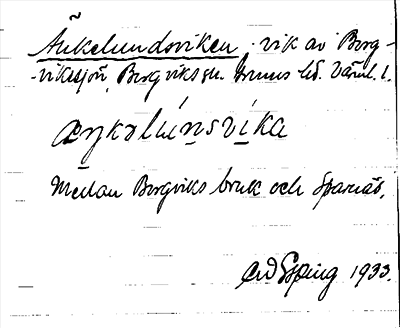 Änkelundsviken, vik av Borg-
-vikssjön, Borgviks sn. Grums hd. Värml. l.
æŋkəlúnsvíka
Mellan Borgviks bruk och Sparnäs.
Esping 1933.